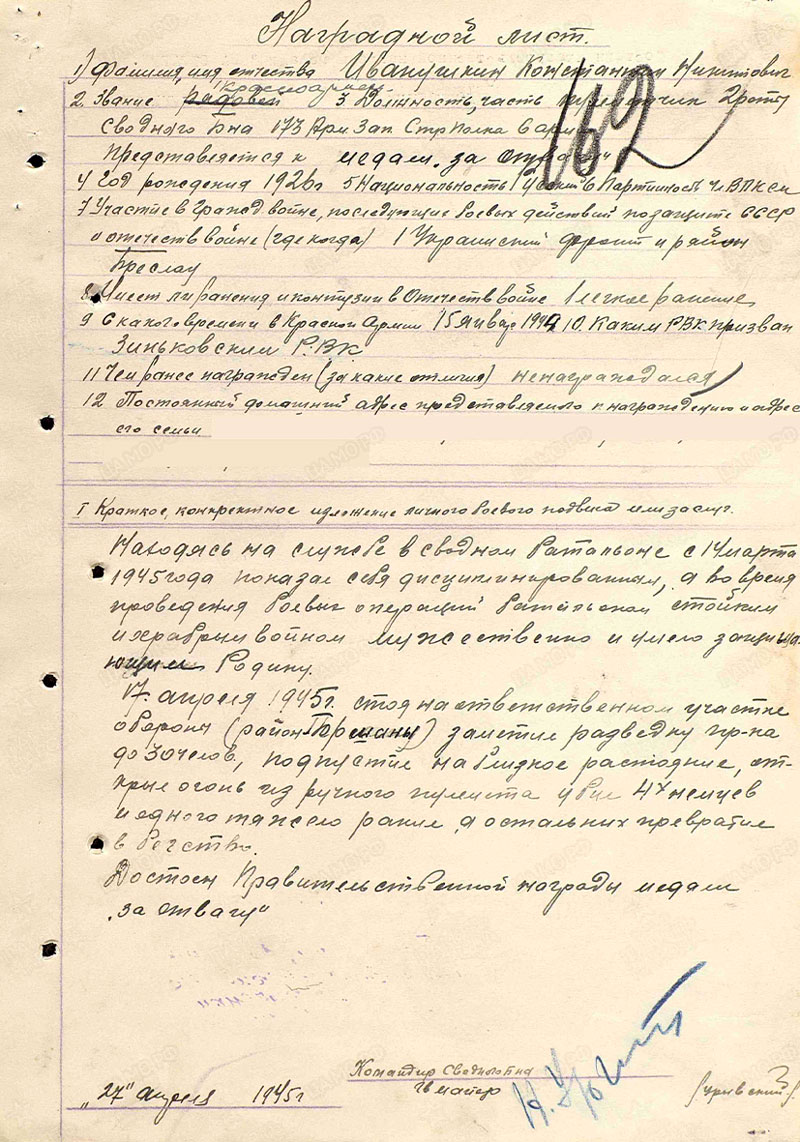 Наградной лист.
1) Фамилия, имя, отчества Иванушкин Константин Никитович
красноармеец
2. Звание рядовой 3 Должность, часть 2 роты
Сводного б-на 173 Арм. Зап. Стр Полка 6 арм
162
Представляется к медали "за отвагу"
4 Год рождения 1926г 5 Национальность Русский 6 Партийность чл ВЛКСМ
7 Участие в Гражд войне, последующие боевых действий по защите СССР
и отечеств войне (где когда) 1 Украинский фронт и район
Бреслау
8. Имеет ли ранения и контузии в Отечеств войне 1 легкое ранение
9 С какого времени в Красной Армии 15 Января 1944 10. Каким РВК призван
Зиньковским Р.ВК
11 Чем ранее награжден (за какие отличия) ненаграждался
12 Постоянный домашний адрес представляемого к награждению и адрес
его семьи
I Краткое, конкретное изложение личного боевого подвига или заслуг.
Находясь на службе в сводном батальоне с 14 марта
1945 года показал себя дисциплинированным, а во время
проведения боевых операций батальоном стойким
и храбрым войном мужественно и умело защища-
ющим Родину.
17. апреля 1945г. стоя на ответственном участке
обороны (район ) заметил разведку пр-ка
до 30 челов, подпустив на близкое растояние, от-
крыл огонь из ручного пулемета убил 4х немцев
и одного тяжело ранил, а остальных превратил
в бегство.
Достоен Правительственной награды медали
"за отвагу"
Командир Сводного б-на
гв майор
"27" апреля 1945г